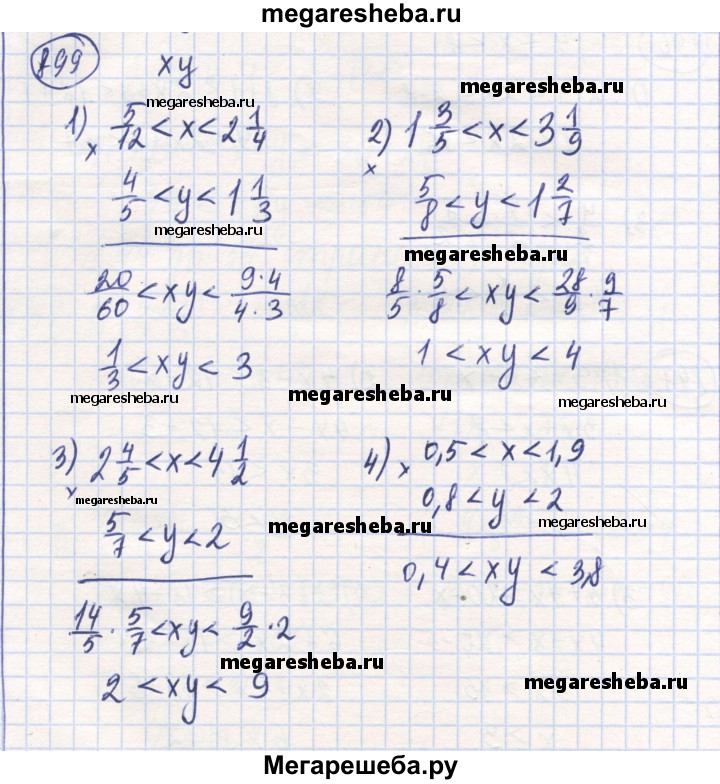 megaresheba.ru
899 xy
megaresheba.ru
megaresheba.ru
1) x 5/12 < x < 2 1/4
4/5 < y < 1 1/3
20/60 < xy < 9·4/4·3
1/3 < xy < 3
megaresheba.ru
2) x 1 3/5 < x < 3 1/9
megaresheba.ru
5/8 < y < 1 2/7
megaresheba.ru
8/5 · 5/8 < xy < 28/9 · 9/7
1 < xy < 4
megaresheba.ru
megaresheba.ru
3) x 2 4/5 < x < 4 1/2
megaresheba.ru
5/7 < y < 2
megaresheba.ru
14/5 · 5/7 < xy < 9/2 · 2
megaresheba.ru
2 < xy < 9
4) x 0,5 < x < 1,9
0,8 < y < 2
megaresheba.ru
0,4 < xy < 3,8
megaresheba.ru
Мегарешеба.ру